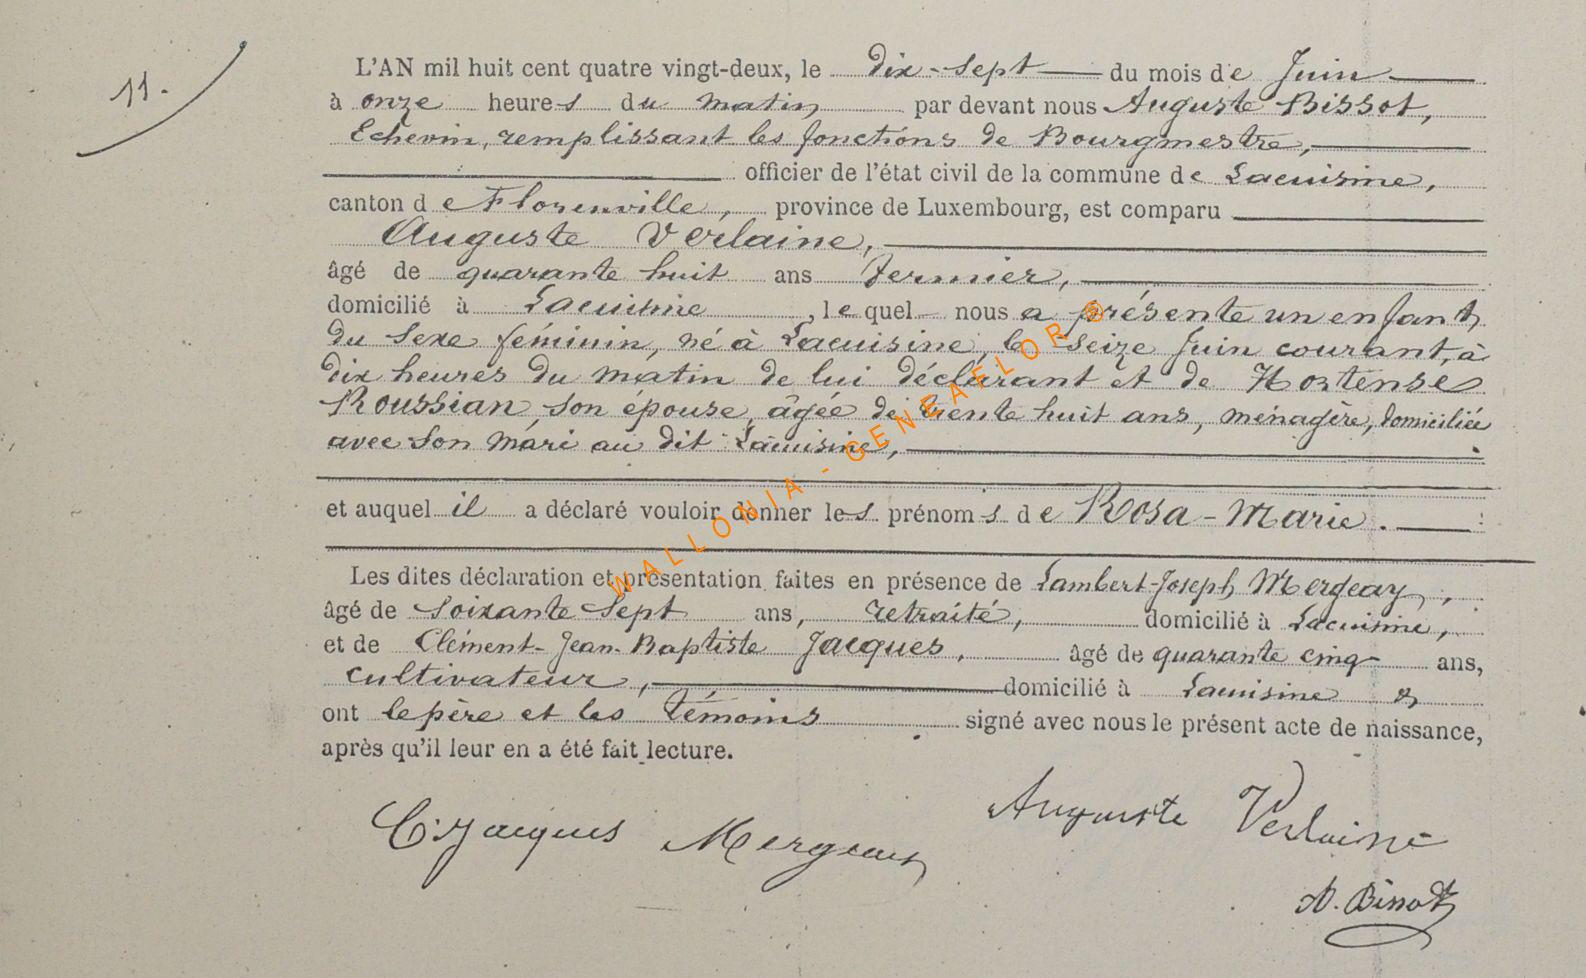 11.
L'AN mil huit cent quatre vingt-deux, le dix-sept du mois de Juin
à onze heures du matin par devant nous Auguste Bissot,
Echevin, remplissant les fonctions de Bourgmestre,
officier de l'état civil de la commune de Lacuisine,
canton de Florenville, province de Luxembourg, est comparu
Auguste Verlaine,
âgé de quarante huit ans fermier,
domicilié à Lacuisine, lequel nous a présenté un enfant
du sexe féminin, né à Lacuisine, le seize Juin courant, à
dix heures du matin de lui déclarant et de Hortense
Roussian, son épouse, âgée de trente huit ans, ménagère, domiciliée
avec son mari au dit Lacuisine,
et auquel il a déclaré vouloir donner les prénoms de Rosa-Marie.
Les dites déclaration et présentation faites en présence de Lambert-Joseph Mergeay,
âgé de soixante sept ans, retraité, domicilié à Lacuisine,
et de Clément-Jean-Baptiste Jacques, âgé de quarante cinq ans,
cultivateur, domicilié à Lacuisine &
ont le père et les témoins signé avec nous le présent acte de naissance,
après qu'il leur en a été fait lecture.
C. Jacques Mergeay Auguste Verlaine
A. Bissot
WALLONIA - GENEAFLOR ©